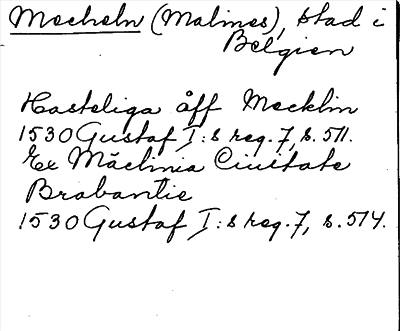 Mecheln (Malines), stad i
Belgien
Hasteliga åff Mecklin
1530 Gustaf I:s reg. 7, s. 511.
Ex Mäclinia Ciuitate
Brabantie
1530 Gustaf I:s reg. 7, s. 514.